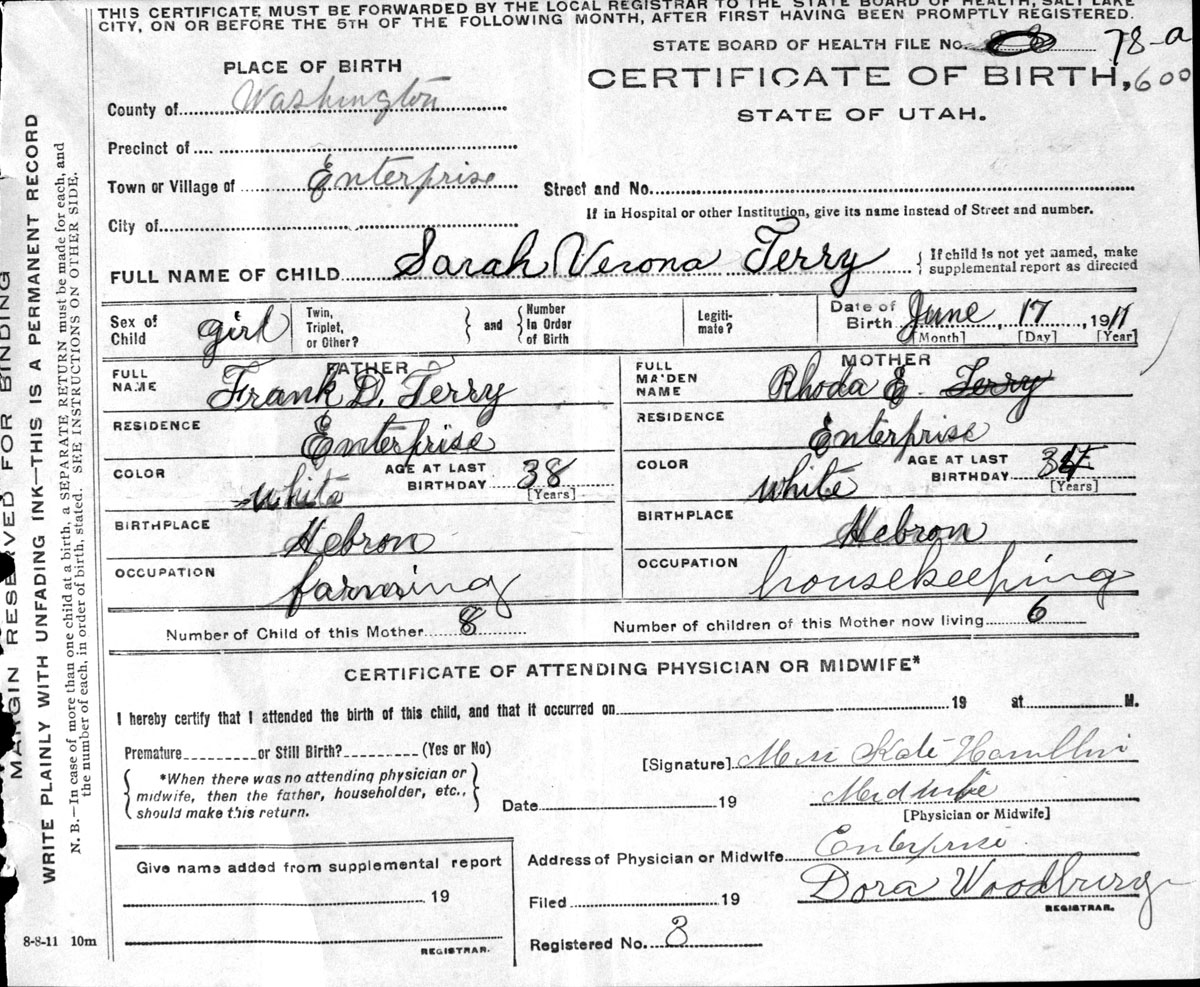 THIS CERTIFICATE MUST BE FORWARDED BY THE LOCAL REGISTRAR TO THE STATE BOARD OF HEALTH, SALT LAKE
CITY, ON OR BEFORE THE 5TH OF THE FOLLOWING MONTH, AFTER FIRST HAVING BEEN PROMPTLY REGISTERED.
STATE BOARD OF HEALTH FILE No. 78-a
PLACE OF BIRTH
CERTIFICATE OF BIRTH, 600
County of Washington
STATE OF UTAH.
Precinct of
Town or Village of Enterprise Street and No.
If in Hospital or other Institution, give its name instead of Street and number.
City of
FULL NAME OF CHILD Sarah Verona Terry { If child is not yet named, make
supplemental report as directed
Sex of Child girl Twin, Triplet, or Other? } and { Number In Order of Birth Legiti-mate? Date of Birth June, 17, 1911
[Month] [Day] [Year]
FATHER MOTHER
FULL NAME Frank D. Terry FULL MAIDEN NAME Rhoda E. Terry
RESIDENCE Enterprise RESIDENCE Enterprise
COLOR White AGE AT LAST BIRTHDAY 38 [Years] COLOR White AGE AT LAST BIRTHDAY [Years]
BIRTHPLACE Hebron BIRTHPLACE Hebron
OCCUPATION farming OCCUPATION housekeeping
Number of Child of this Mother 8 Number of children of this Mother now living 6
CERTIFICATE OF ATTENDING PHYSICIAN OR MIDWIFE*
I hereby certify that I attended the birth of this child, and that it occurred on 19 at M.
Premature or Still Birth? (Yes or No)
[Signature] Kate Hamblin
{ *When there was no attending physician or
midwife, then the father, householder, etc.,
should make this return. }
Date 19 Midwife
[Physician or Midwife]
Give name added from supplemental report
19
REGISTRAR.
Address of Physician or Midwife Enterprise
Filed 19 Dora Woodbury
REGISTRAR.
Registered No. 3
8-8-11 10m
MARGIN RESERVED FOR BINDING
WRITE PLAINLY WITH UNFADING INK—THIS IS A PERMANENT RECORD
N. B.—In case of more than one child at a birth, a SEPARATE RETURN must be made for each, and
the number of each, in order of birth, stated. SEE INSTRUCTIONS ON OTHER SIDE.